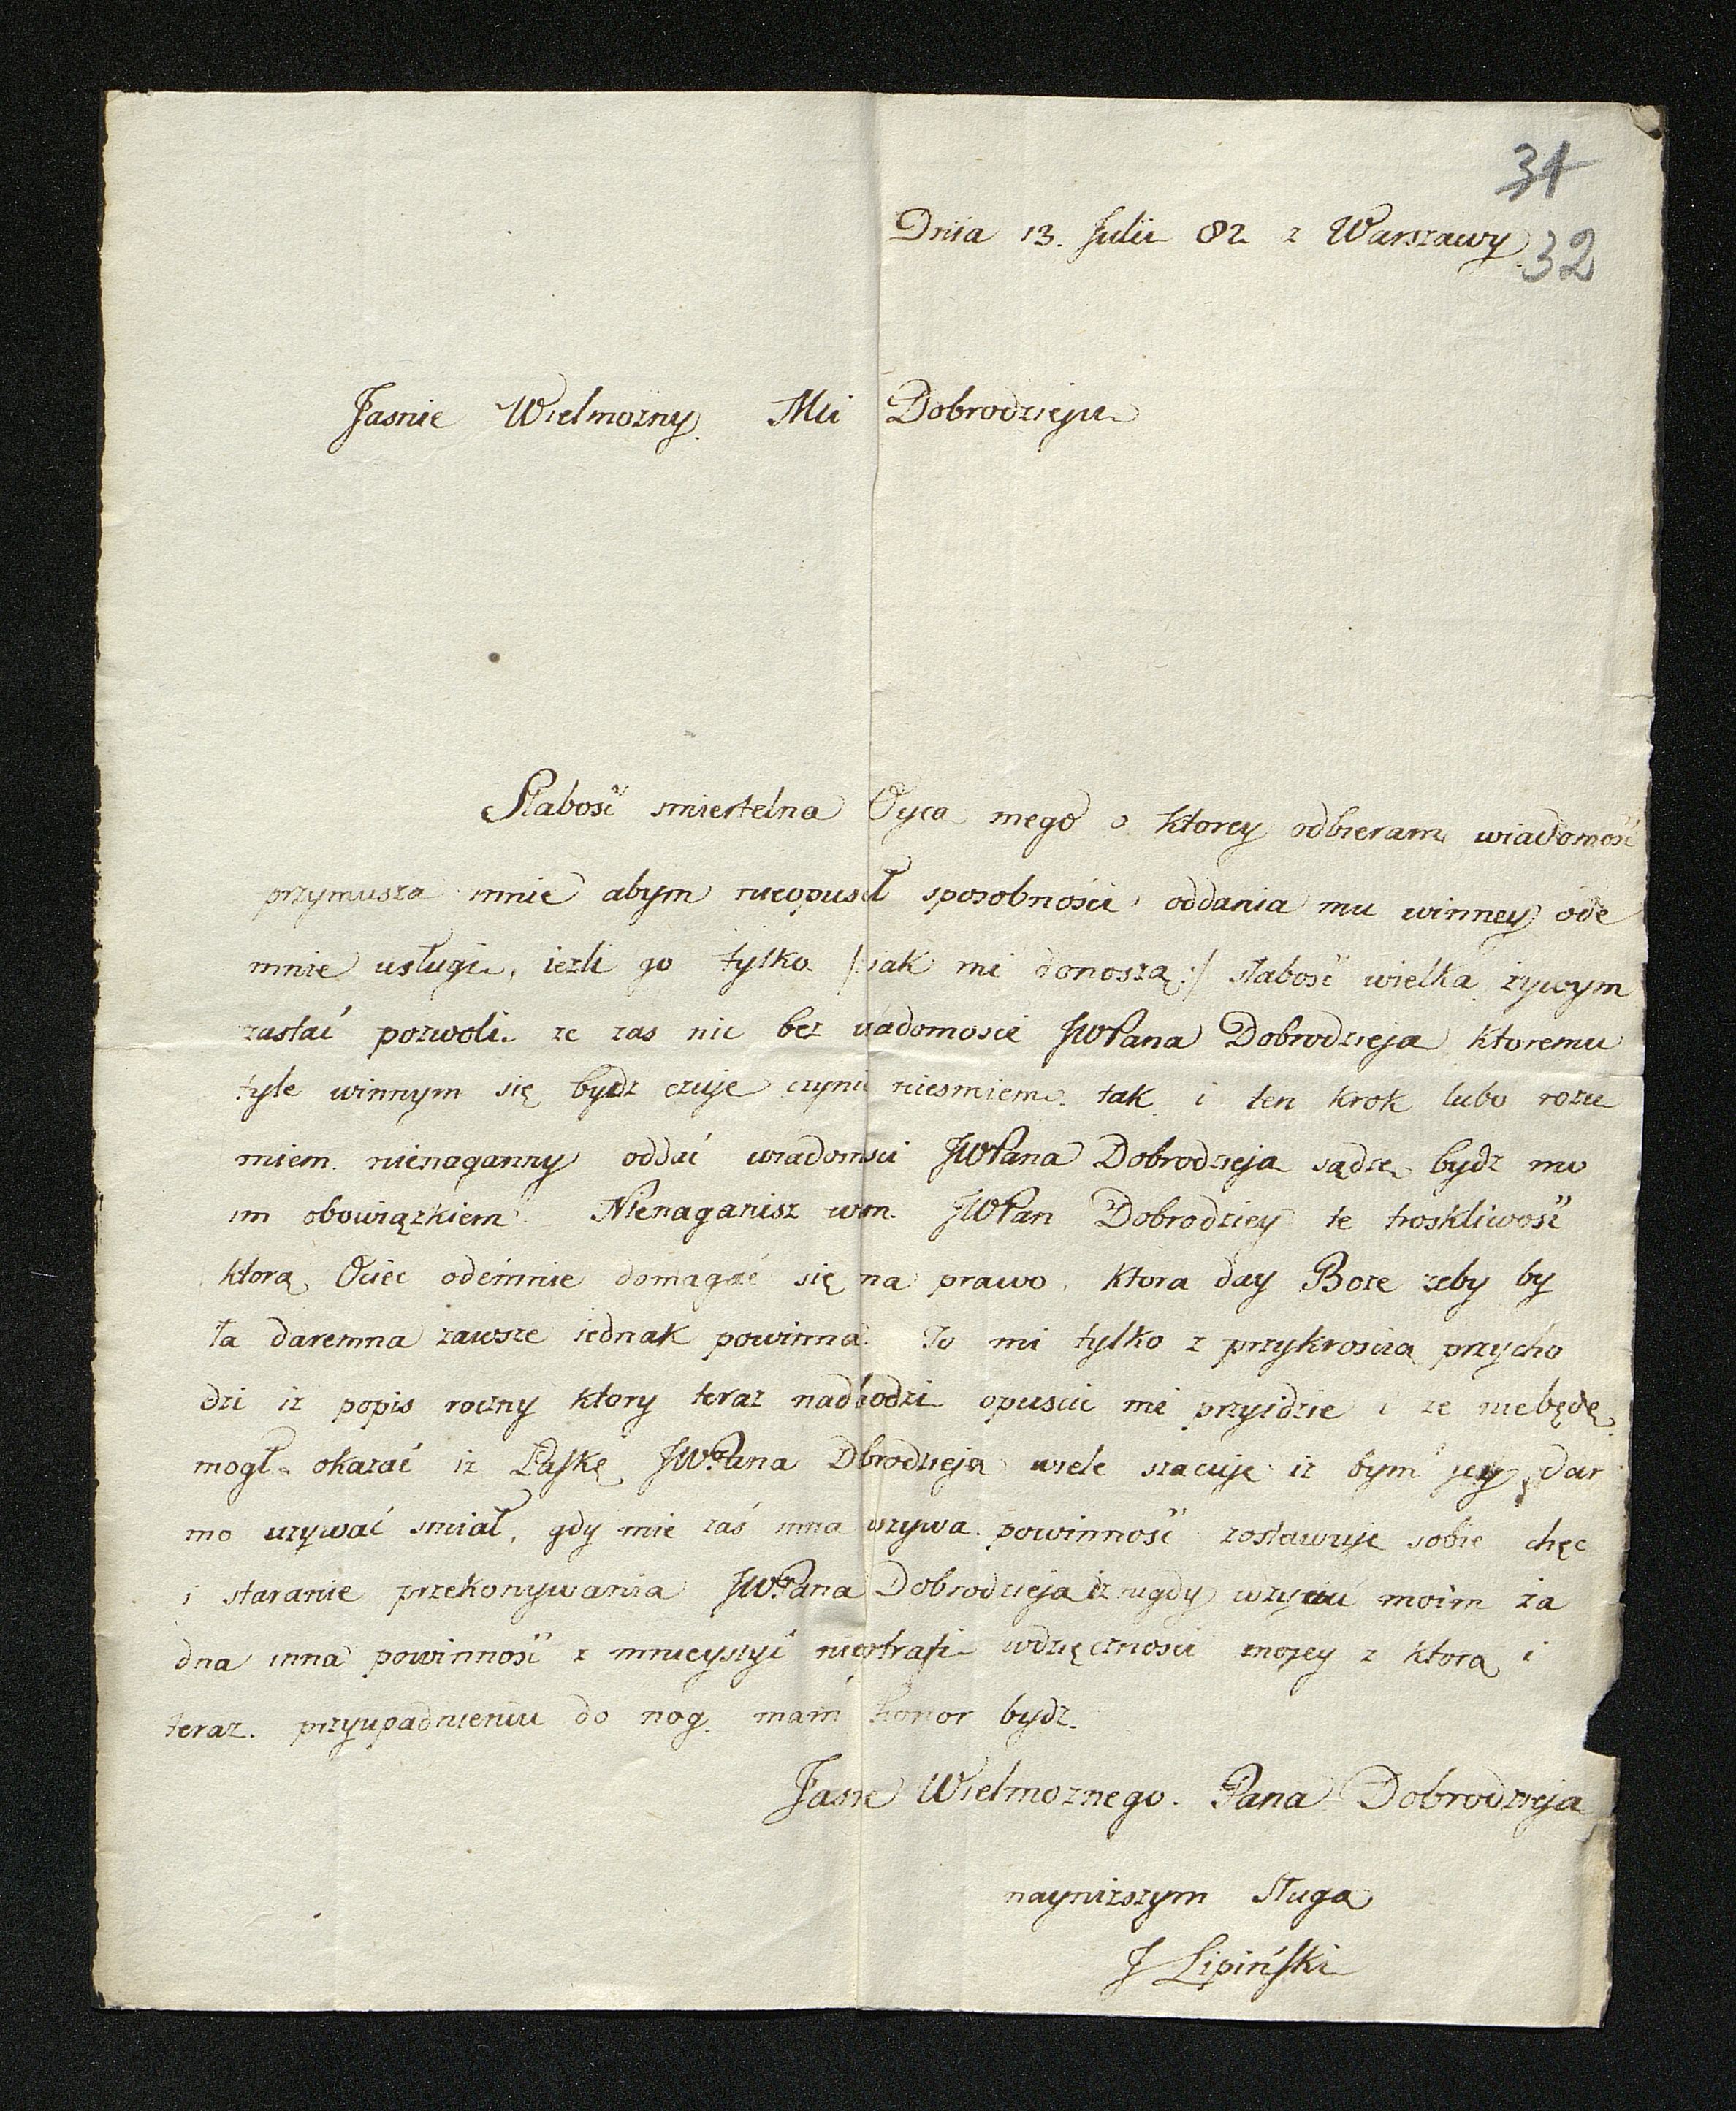 31
Dnia 13. Julii 82 z Warszawy
32
Jasnie Wielmozny Mci Dobrodzieju
Słabość smiertelna Oyca mego o ktorey odbieram wiadomość
przymusza mnie abym nieopuscił sposobności oddania mu winney ode
mnie usługi, iezli go tylko /:iak mi donoszą:/ słabość wielka zywym
zastać pozwoli. ze zas nic bez wiadomosci JWPana Dobrodzieja ktoremu
tyle winnym się bydz czuje czynić niesmiem tak i ten krok lubo rozu
miem nienaganny oddać wiadomsci JWPana Dobrodzieja sądzę bydz mo
im obowiązkiem. Nienaganisz wm. JWPan Dobrodziey te troskliwość
ktorą Ociec odemnie domagać się ma prawo, ktora day Boze zeby by
ła daremna zawsze iednak powinna. To mi tylko z przykroscią przycho
dzi iz popis roczny ktory teraz nadchodzi opuscić mi przyidzie i ze niebędę
mogł okazać iz Łaskę JWPana Dbrodzieja wiele szacuje iz bym jey dar
mo uzywać smiał, gdy mie zaś inna wzywa powinność zostawuje sobie chęc
i staranie przekonywania JWPana Dobrodzieja iz nigdy wzyciu moim ża
dna inna powinność z mnieyszyć niepotrafi wdzięczności mojey z ktorą i
teraz przyupadnieniu do nog mam honor bydz.
Jasnie Wielmoznego Pana Dobrodzieja
nayniższym Sługa
J Lipiński